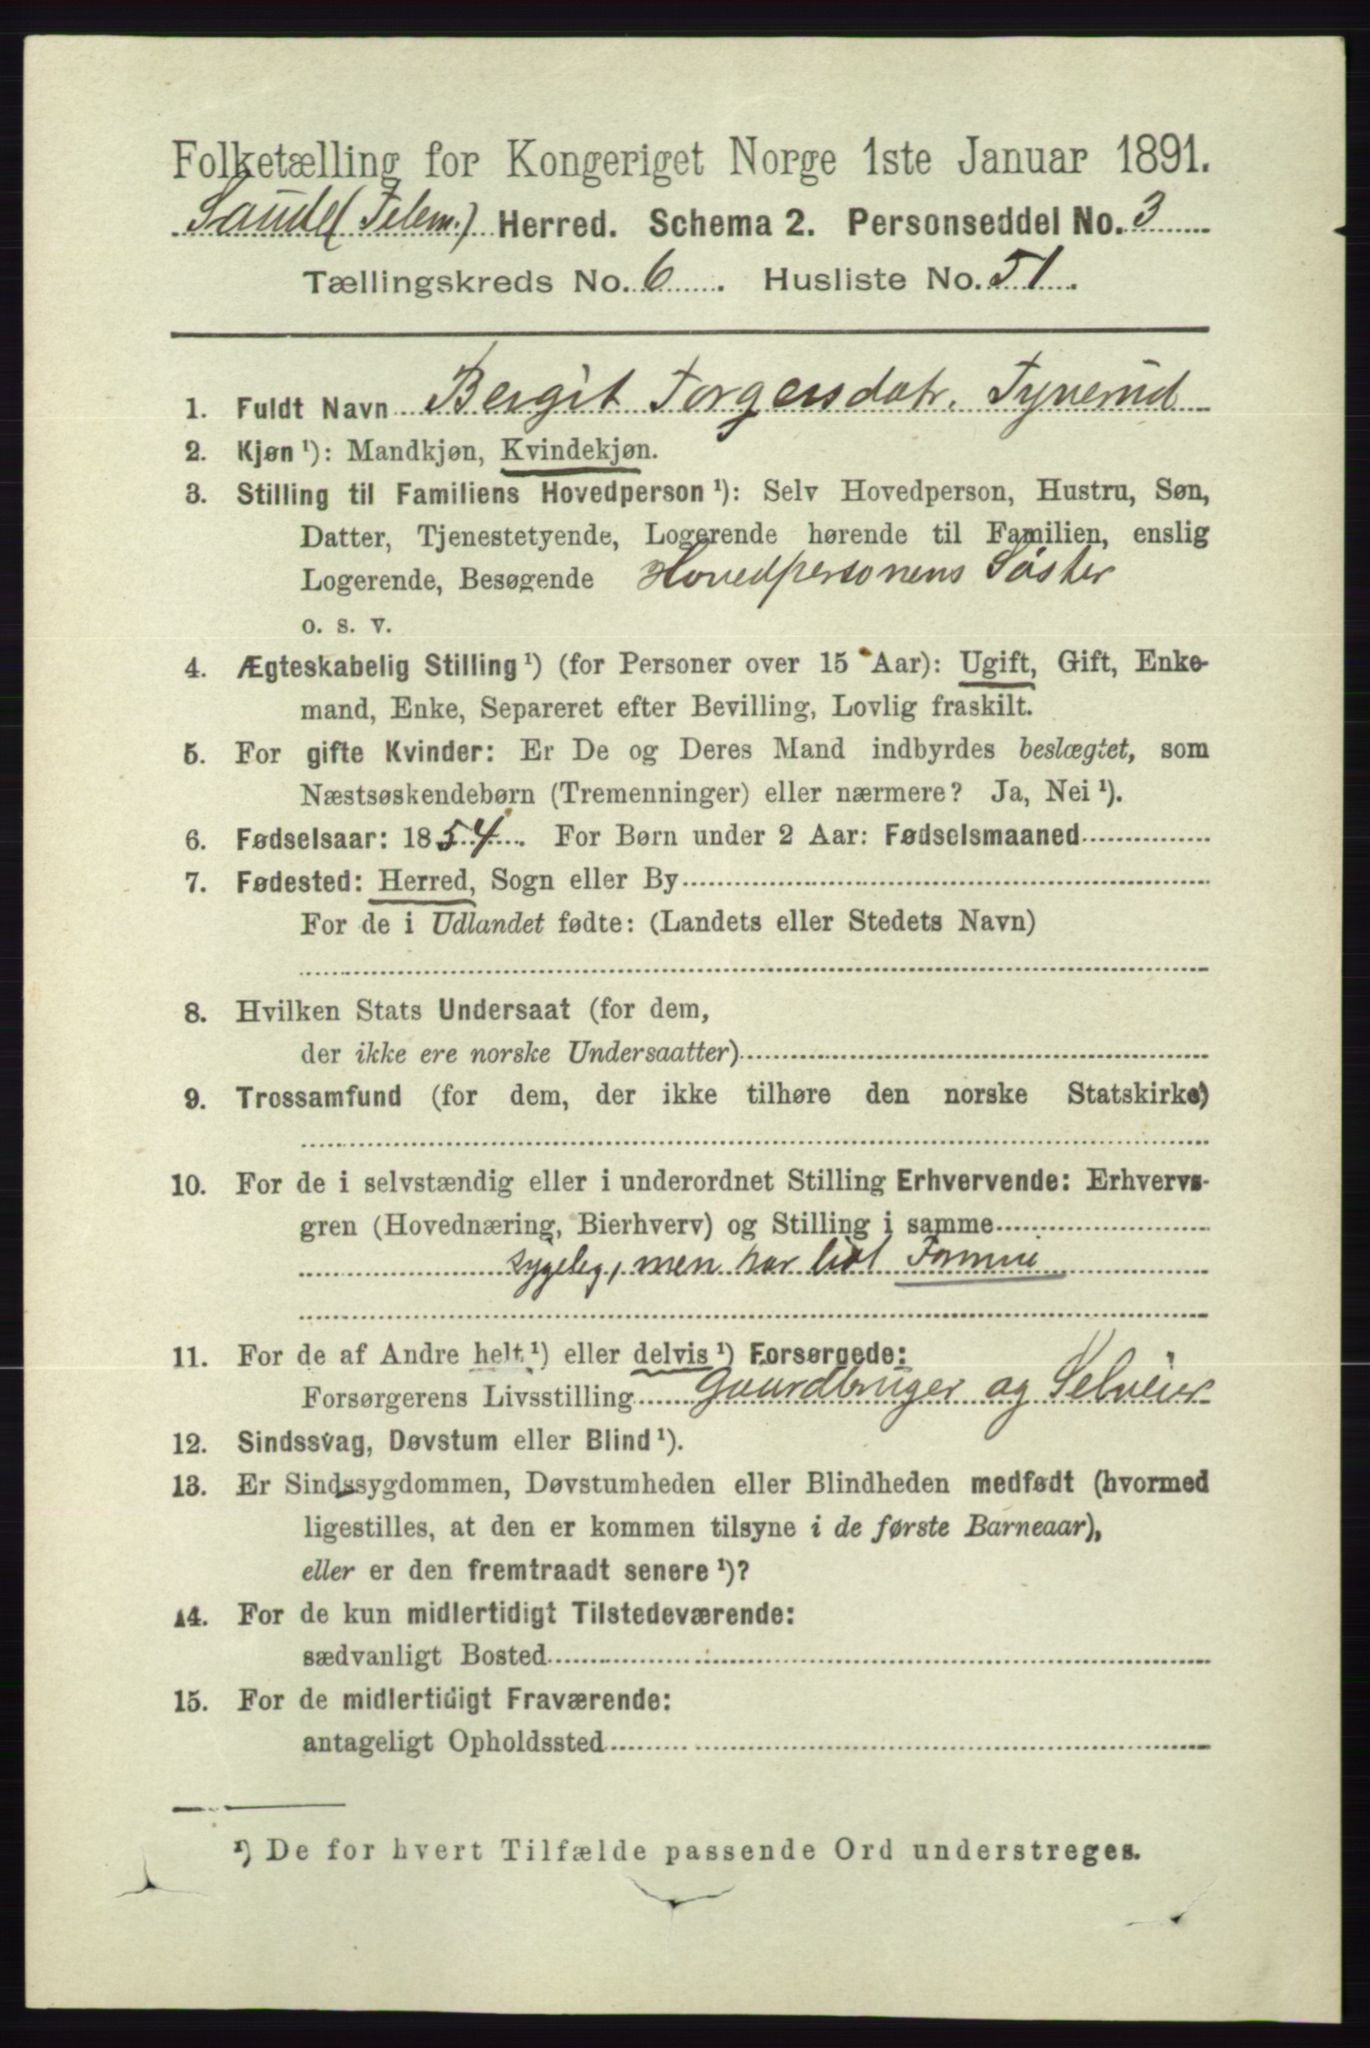 Folketælling for Kongeriget Norge 1ste Januar 1891.
Saude (Telem.) Herred. Schema 2. Personseddel No. 3
Tællingskreds No. 6. Husliste No. 51.
1. Fuldt Navn Bergit Torgersdatr. Tynerud
2. Kjøn ¹): Mandkjøn, Kvindekjøn.
3. Stilling til Familiens Hovedperson ¹): Selv Hovedperson, Hustru, Søn,
Datter, Tjenestetyende, Logerende hørende til Familien, enslig
Logerende, Besøgende Hovedpersonens Søster
o. s. v.
4. Ægteskabelig Stilling ¹) (for Personer over 15 Aar): Ugift, Gift, Enke-
mand, Enke, Separeret efter Bevilling, Lovlig fraskilt.
5. For gifte Kvinder: Er De og Deres Mand indbyrdes beslægtet, som
Næstsøskendebørn (Tremenninger) eller nærmere? Ja, Nei ¹).
6. Fødselsaar: 1854. For Børn under 2 Aar: Fødselsmaaned
7. Fødested: Herred, Sogn eller By
For de i Udlandet fødte: (Landets eller Stedets Navn)
8. Hvilken Stats Undersaat (for dem,
der ikke ere norske Undersaatter)
9. Trossamfund (for dem, der ikke tilhøre den norske Statskirke)
10. For de i selvstændig eller i underordnet Stilling Erhvervende: Erhvervs-
gren (Hovednæring, Bierhverv) og Stilling i samme
sygelig, men har lidt Formue
11. For de af Andre helt ¹) eller delvis ¹) Forsørgede:
Forsørgerens Livsstilling Gaardbruger og Selveier
12. Sindssvag, Døvstum eller Blind ¹).
13. Er Sindssygdommen, Døvstumheden eller Blindheden medfødt (hvormed
ligestilles, at den er kommen tilsyne i de første Barneaar),
eller er den fremtraadt senere ¹)?
14. For de kun midlertidigt Tilstedeværende:
sædvanligt Bosted
15. For de midlertidigt Fraværende:
antageligt Opholdssted
¹) De for hvert Tilfælde passende Ord understreges.